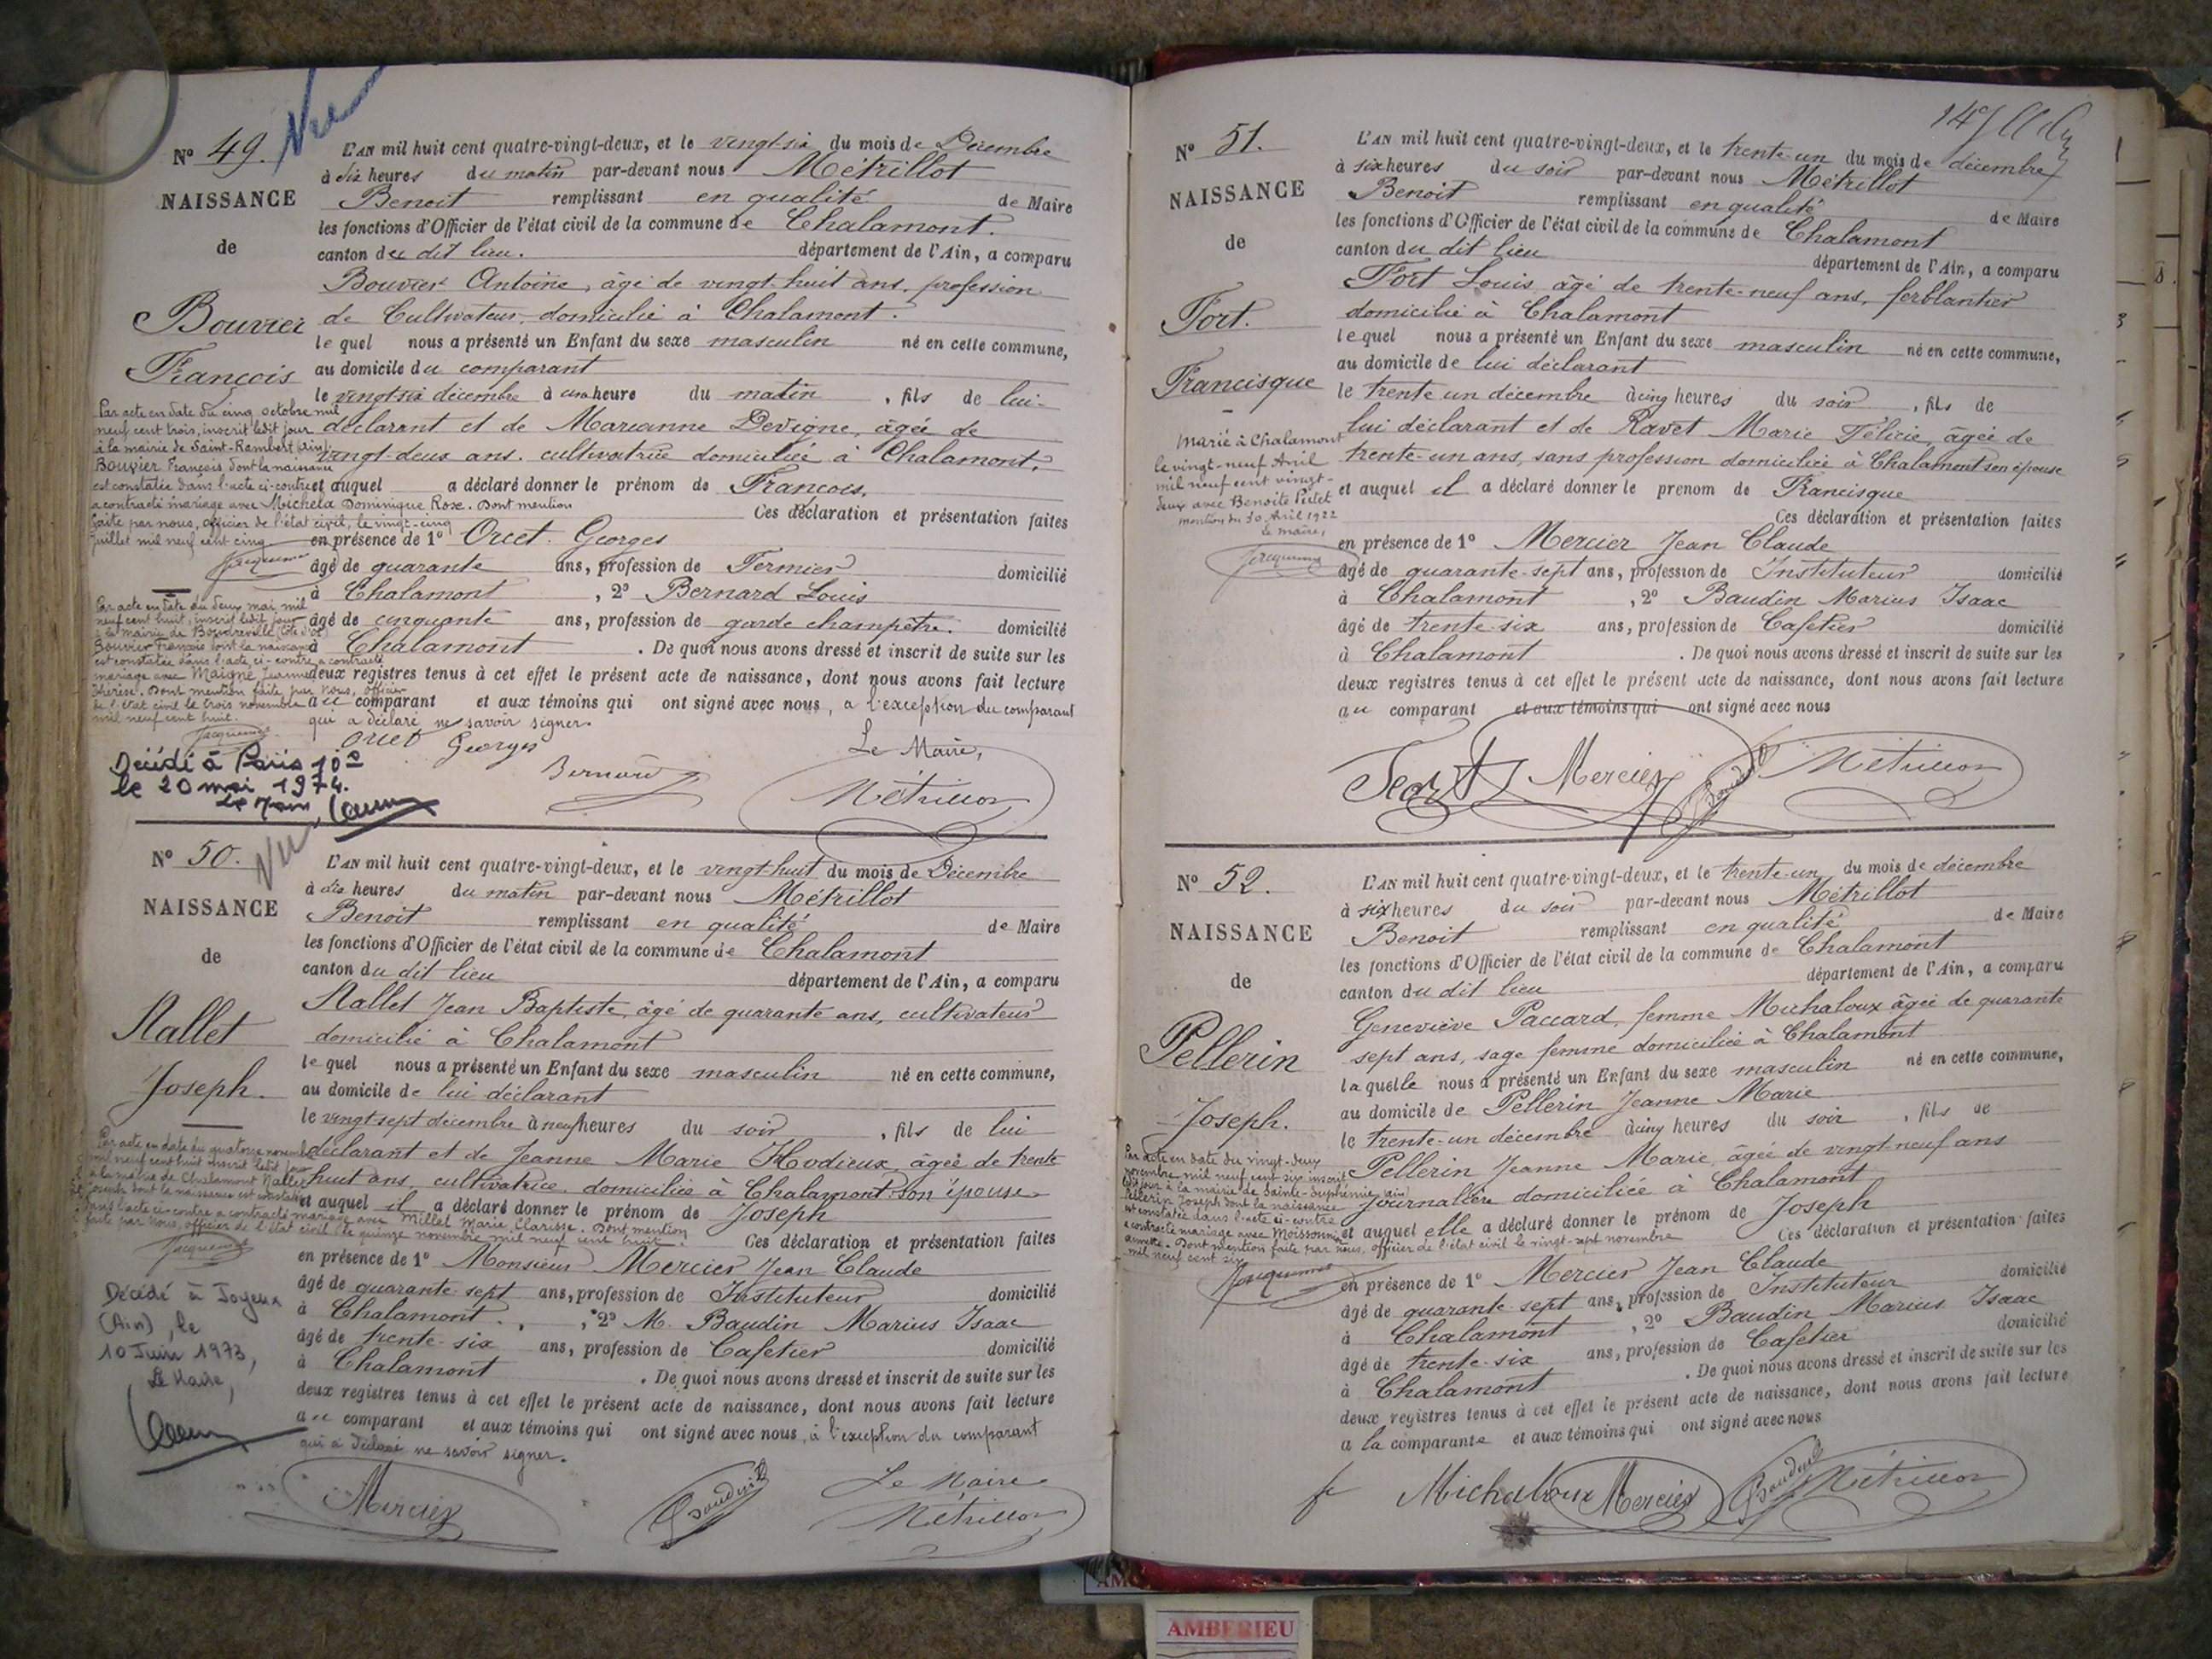 Nº 49.
NAISSANCE
de
Bouvier
François
L'AN mil huit cent quatre-vingt-deux, et le vingt-six du mois de Décembre
à dix heures du matin par-devant nous Métrillot
Benoit remplissant en qualité de Maire
les fonctions d'Officier de l'état civil de la commune de Chalamont.
canton du dit lieu. département de l'Ain, a comparu
Bouvier Antoine, âgé de vingt-huit ans, profession
de Cultivateur, domicilié à Chalamont.
lequel nous a présenté un Enfant du sexe masculin né en cette commune,
au domicile du comparant
le vingt-six décembre à une heure du matin, fils de lui-
déclarant et de Marianne Devigne, âgée de
vingt-deux ans, cultivatrice domiciliée à Chalamont,
et auquel a déclaré donner le prénom de François.
Ces déclaration et présentation faites
en présence de 1º Orcet Georges
âgé de quarante ans, profession de Fermier domicilié
à Chalamont, 2º Bernard Louis
âgé de cinquante ans, profession de garde champêtre. domicilié
à Chalamont. De quoi nous avons dressé et inscrit de suite sur les
deux registres tenus à cet effet le présent acte de naissance, dont nous avons fait lecture
au comparant et aux témoins qui ont signé avec nous, a l'exception du comparant
qui a déclaré ne savoir signer.
Orcet Georges
Bernard
Le Maire,
Métrillot
Par acte en date du cinq octobre mil
neuf cent trois, inscrit ledit jour
à la mairie de Saint-Rambert (Ain)
Bouvier François dont la naissance
est constatée dans l'acte ci-contre
a contracté mariage avec Michela Dominique Rose. Dont mention
faite par nous, officier de l'état civil, le vingt-cinq
juillet mil neuf cent cinq
Jacquemet
Par acte en date du deux mai mil
neuf cent huit, inscrit ledit jour
à la mairie de Boudreville (Côte d'Or)
Bouvier François dont la naissance
est constatée dans l'acte ci-contre a contracté
mariage avec Maigne Jeanne
Thérèse. Dont mention faite par nous, officier
de l'état civil le trois novembre
mil neuf cent huit.
Jacquemet
Décédé à Paris 10e
le 20 mai 1974.
Le Maire,
Nº 50.
Vu
NAISSANCE
de
Nallet
Joseph.
L'AN mil huit cent quatre-vingt-deux, et le vingt-huit du mois de Décembre
à dix heures du matin par-devant nous Métrillot
Benoit remplissant en qualité de Maire
les fonctions d'Officier de l'état civil de la commune de Chalamont
canton du dit lieu département de l'Ain, a comparu
Nallet Jean Baptiste, âgé de quarante ans, cultivateur
domicilié à Chalamont
lequel nous a présenté un Enfant du sexe masculin né en cette commune,
au domicile de lui déclarant
le vingt-sept décembre à neuf heures du soir, fils de lui
déclarant et de Jeanne Marie Hodieux, âgée de trente
huit ans, cultivatrice, domiciliée à Chalamont son épouse
et auquel il a déclaré donner le prénom de Joseph
Ces déclaration et présentation faites
en présence de 1º Monsieur Mercier Jean Claude
âgé de quarante-sept ans, profession de Instituteur domicilié
à Chalamont, 2º M. Baudin Marius Isaac
âgé de trente-six ans, profession de Cafetier domicilié
à Chalamont. De quoi nous avons dressé et inscrit de suite sur les
deux registres tenus à cet effet le présent acte de naissance, dont nous avons fait lecture
au comparant et aux témoins qui ont signé avec nous, à l'exception du comparant
qui a déclaré ne savoir signer.
Mercier
Baudin
Le Maire
Métrillot
Par acte en date du quatorze novembre
mil neuf cent huit inscrit ledit jour
à la mairie de Chalamont Nallet
Joseph dont la naissance est constatée
dans l'acte ci-contre a contracté mariage avec Millet Marie Clarisse. Dont mention
faite par nous, officier de l'état civil, le quinze novembre mil neuf cent huit.
Jacquemet
Décédé à Joyeux
(Ain), le
10 Juin 1973,
Le Maire,
Nº 51.
NAISSANCE
de
Fort.
Francisque
L'AN mil huit cent quatre-vingt-deux, et le trente-un du mois de décembre
à six heures du soir par-devant nous Métrillot
Benoit remplissant en qualité de Maire
les fonctions d'Officier de l'état civil de la commune de Chalamont
canton du dit lieu département de l'Ain, a comparu
Fort Louis, âgé de trente-neuf ans, ferblantier
domicilié à Chalamont
lequel nous a présenté un Enfant du sexe masculin né en cette commune,
au domicile de lui déclarant
le trente un décembre à cinq heures du soir, fils de
lui déclarant et de Ravet Marie Félicie, âgée de
trente-un ans, sans profession domiciliée à Chalamont son épouse
et auquel il a déclaré donner le prénom de Francisque
Ces déclaration et présentation faites
en présence de 1º Mercier Jean Claude
âgé de quarante-sept ans, profession de Instituteur domicilié
à Chalamont, 2º Baudin Marius Isaac
âgé de trente-six ans, profession de Cafetier domicilié
à Chalamont. De quoi nous avons dressé et inscrit de suite sur les
deux registres tenus à cet effet le présent acte de naissance, dont nous avons fait lecture
au comparant et aux témoins qui ont signé avec nous
Fort Mercier Baudin Métrillot
Marié à Chalamont
le vingt-neuf Avril
mil neuf cent vingt-
deux avec Benoîte
mention du 30 Avril 1922
Le maire,
Jacquemet
Nº 52.
NAISSANCE
de
Pellerin
Joseph.
L'AN mil huit cent quatre-vingt-deux, et le trente-un du mois de décembre
à six heures du soir par-devant nous Métrillot
Benoit remplissant en qualité de Maire
les fonctions d'Officier de l'état civil de la commune de Chalamont
canton du dit lieu département de l'Ain, a comparu
Geneviève Paccard, femme Michaloux âgée de quarante
sept ans, sage femme domiciliée à Chalamont
laquelle nous a présenté un Enfant du sexe masculin né en cette commune,
au domicile de Pellerin Jeanne Marie
le trente-un décembre à cinq heures du soir, fils de
Pellerin Jeanne Marie, âgée de vingt-neuf ans
journalière domiciliée à Chalamont
et auquel elle a déclaré donner le prénom de Joseph
Ces déclaration et présentation faites
en présence de 1º Mercier Jean Claude
âgé de quarante-sept ans, profession de Instituteur domicilié
à Chalamont, 2º Baudin Marius Isaac
âgé de trente-six ans, profession de Cafetier domicilié
à Chalamont. De quoi nous avons dressé et inscrit de suite sur les
deux registres tenus à cet effet le présent acte de naissance, dont nous avons fait lecture
a la comparante et aux témoins qui ont signé avec nous
fe Michaloux Mercier Baudin Métrillot
Par acte en date du vingt-deux
novembre mil neuf cent six inscrit
ledit jour à la mairie de Sainte-Euphémie (Ain)
Pellerin Joseph dont la naissance
est constatée dans l'acte ci-contre
a contracté mariage avec Moissonnier
Annette. Dont mention faite par nous, officier de l'état civil le vingt-sept novembre
mil neuf cent six
Jacquemet
AMBERIEU